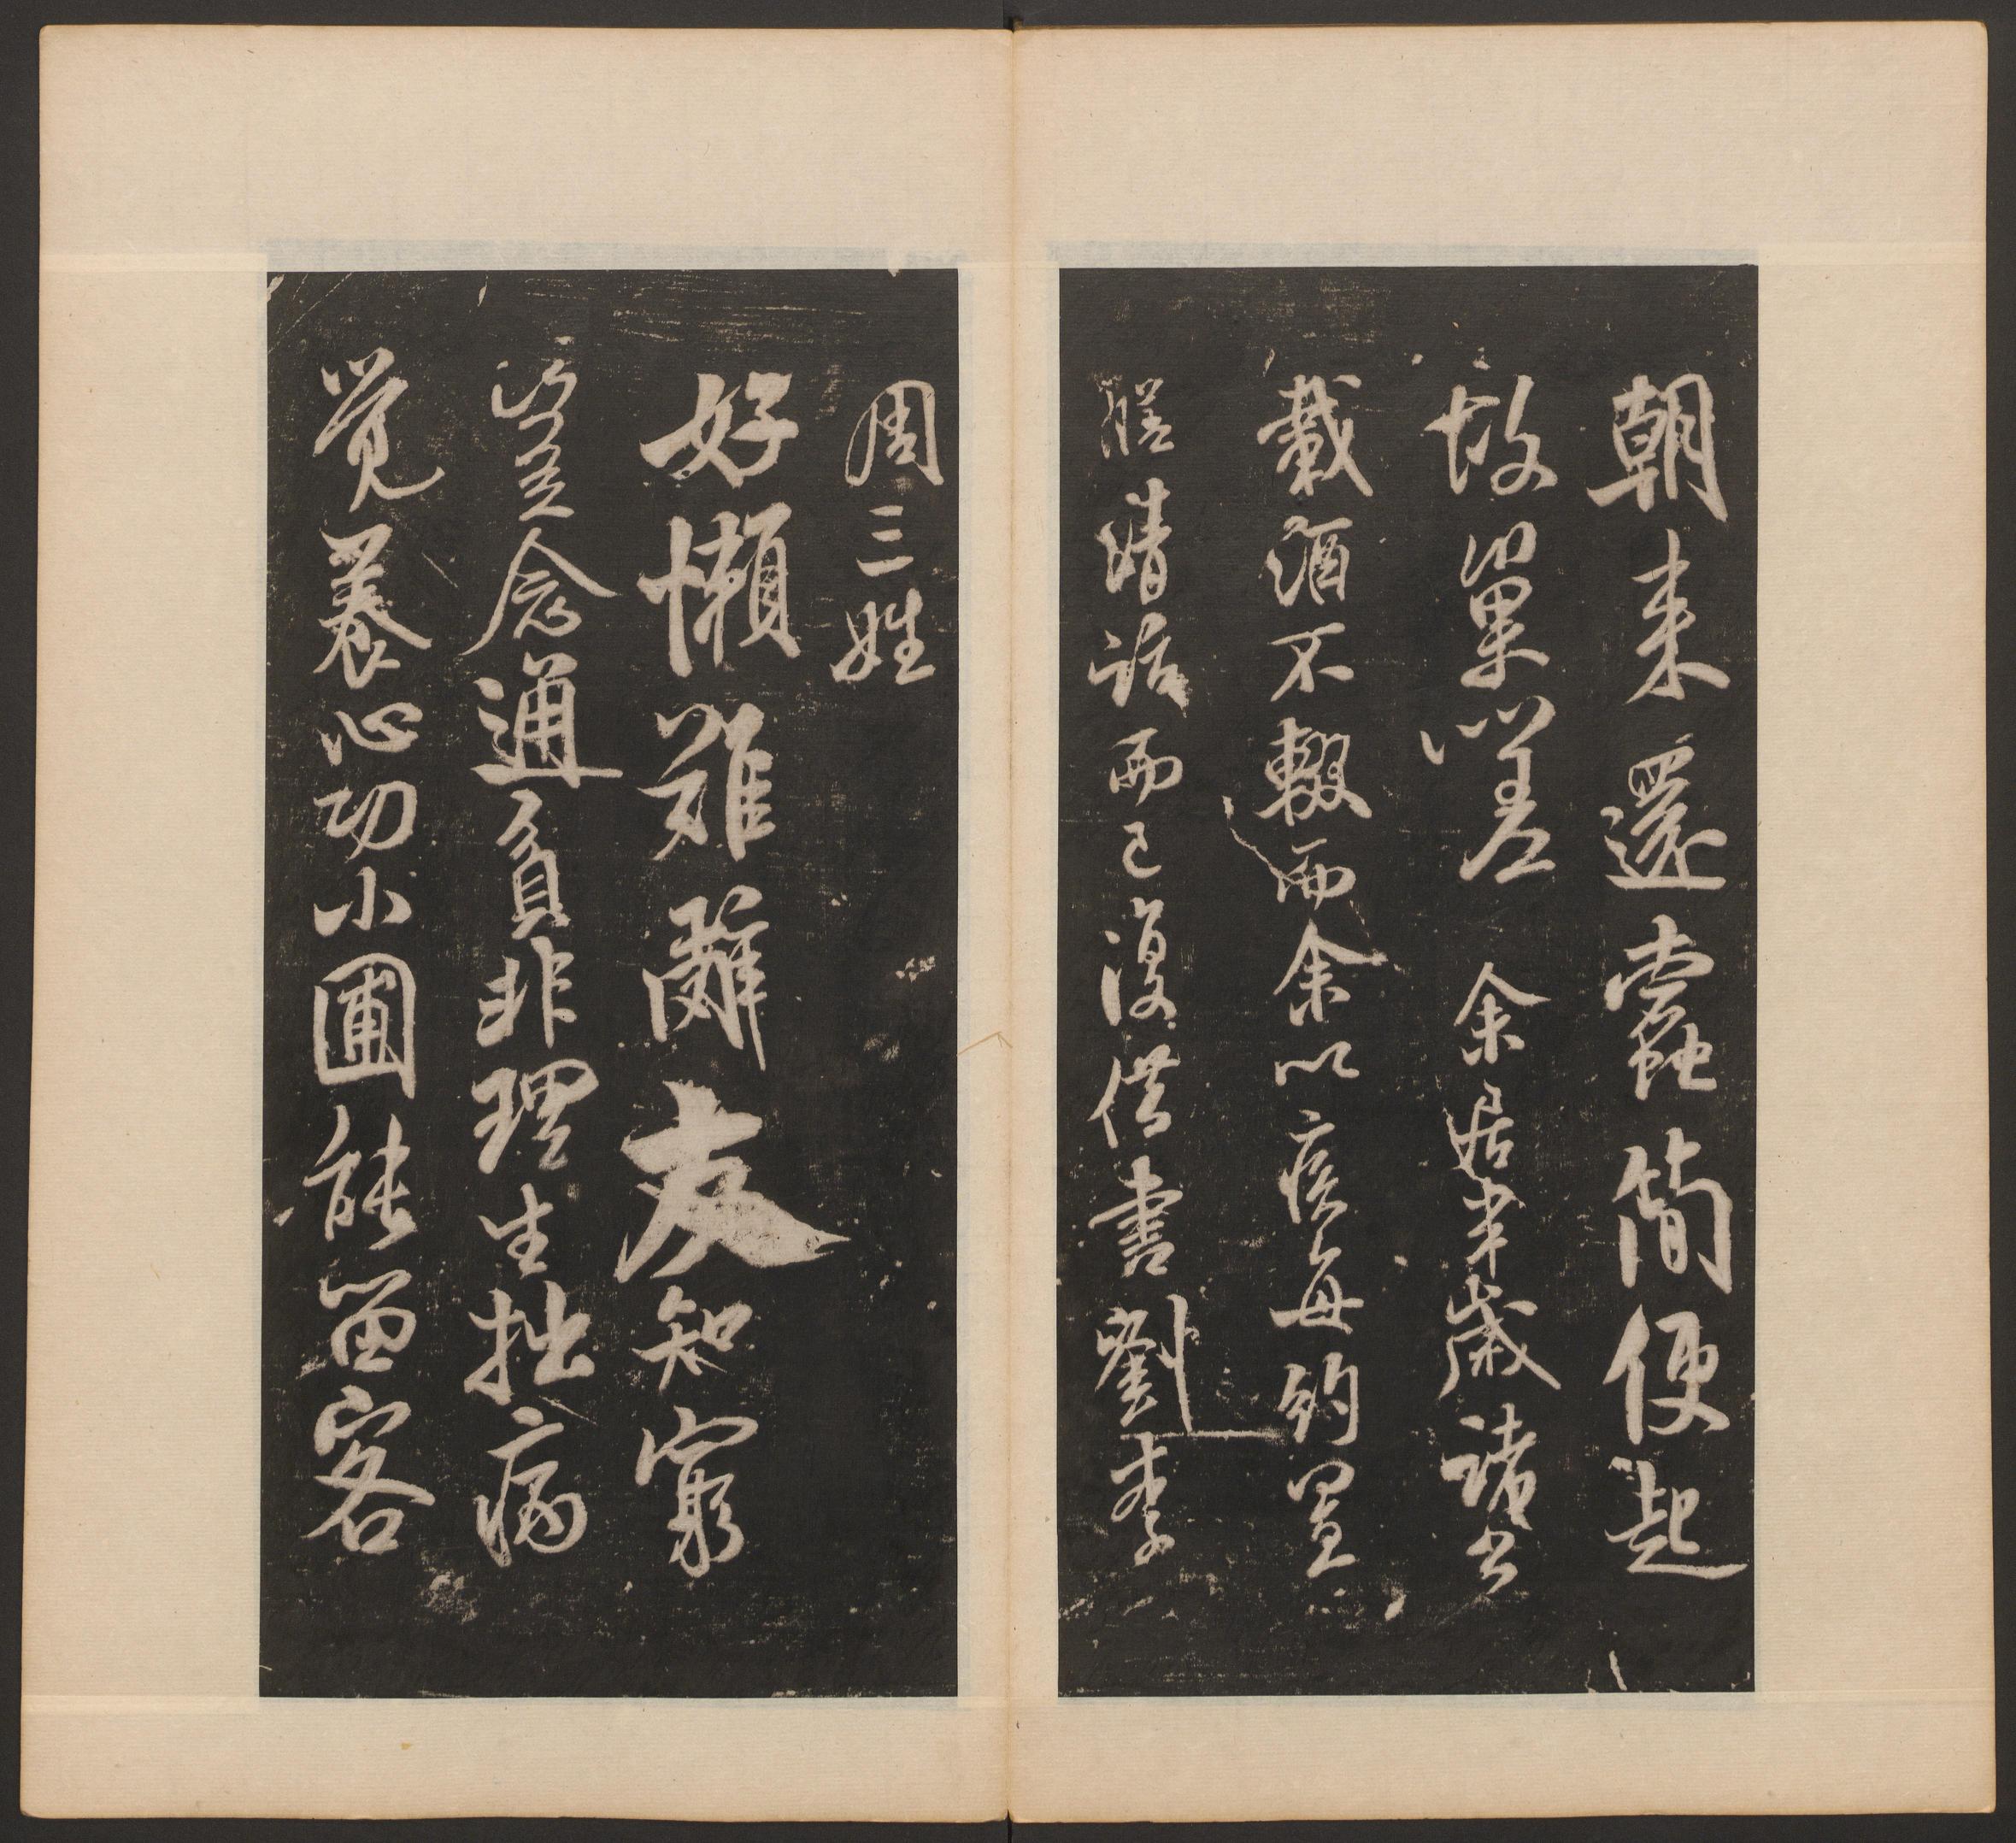 朝来還蠹簡便起
故巢嗟 余居半歲諸公
載酒不輟而余以疾每約置
膳清話而已復借書劉李
周三姓
好懶難辭友知窮
豈念通貧非理生拙病
覺養心功小圃能留客